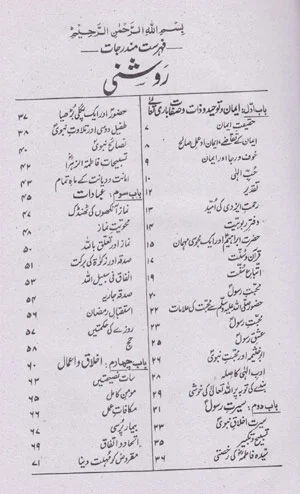 بِسْمِ اللّٰہِ الرَّحْمٰنِ الرَّحِیْمِ
فہرست مندرجات
روشنی
باب اوّل: ایمان و توحید و ذات و صفات باری تعالیٰ
حقیقت ایمان ۷
ایمان کے تقاضے، ایمان اور عمل صالح ۸
خوف و رجا اور ایمان ۹
حُبِّ الٰہی ۱۰
تقدیر ۱۲
رحمتِ ایزدی کی اُمید ۱۳
دفترِ ربوبیت ۱۴
حضرت ابراہیمؑ اور ایک مجوسی مہمان ۱۵
قرآن و سُنّت ۱۷
اتباعِ سُنّت ۱۹
محبتِ رسولؐ ۲۰
حضور صلی اللہ علیہ وسلم سے محبت کی علامات ۲۲
محبتِ رسولؐ ۲۳
عشقِ رسولؐ ۲۴
اور محبتِ نبویؐ ۲۶
ادبِ الٰہی کا صلہ ۲۸
بندے کی توبہ پر اللہ تعالیٰ کی خوشی ۲۹
باب دوم: سیرت رسولؐ ۳۱
سیرت اخلاقِ نبویؐ ۳۳
تسبیح و تکبیر ۳۵
سیدہ فاطمہؓ کی رخصتی ۳۶
حضورؐ اور ایک بڑھیا ۳۷
طفیل دوسی اور تلاوتِ نبویؐ ۳۸
نصائحِ نبویؐ ۴۰
تسبیحات فاطمۃ الزہراؓ ۴۲
امانت و دیانت کے ماہِ تمام ۴۳
باب سوم: عبادات ۴۵
نماز آنکھوں کی ٹھنڈک ۴۷
محویتِ نماز ۴۸
نماز اور تعلق باللہ ۵۰
صدقہ اور زکوٰۃ کی برکت ۵۱
انفاق فی سبیل اللہ ۵۳
صدقہ جاریہ ۵۴
استقبالِ رمضان ۵۶
روزے کی حکمتیں ۵۷
حج ۵۸
باب چہارم: اخلاق و اعمال ۶۰
سات نصیحتیں ۶۳
مومنِ کامل ۶۵
مکافاتِ عمل ۶۶
بیمار پُرسی ۶۷
اتحاد و اتفاق ۶۹
مقروض کو مُہلت دینا ۷۱